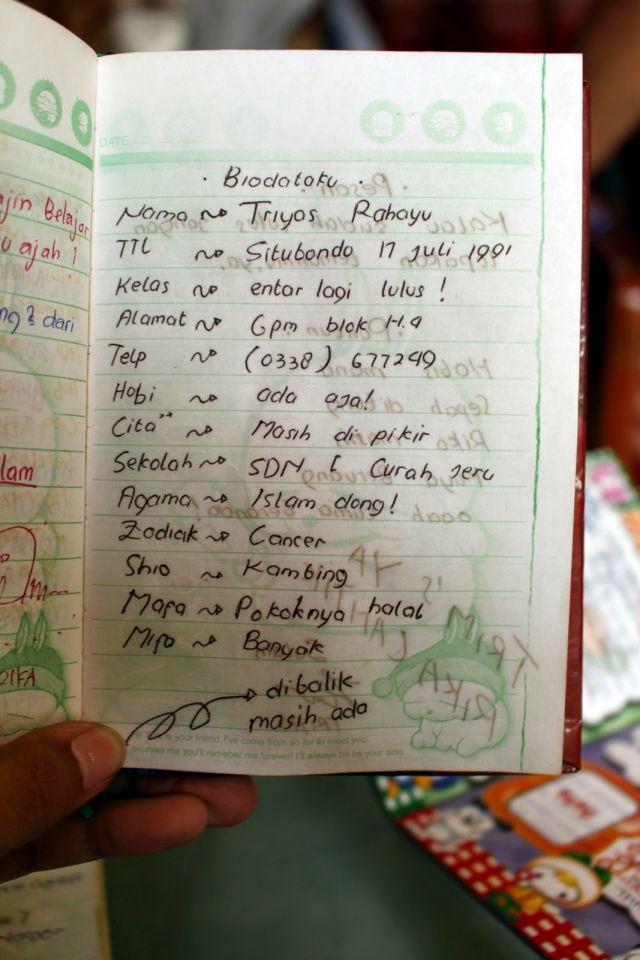 DATE
ajin Belajar
u ajah !
dari
RIFA
· Biodataku ·
Nama ~ Triyas Rahayu
TTL ~ Situbondo 17 Juli 1991
Kelas ~ entar lagi lulus !
Alamat ~ Gpm blok H.9
Telp ~ (0338) 677249
Hobi ~ ada aja!
Cita" ~ Masih di pikir
Sekolah ~ SDN 1 Curah Jeru
Agama ~ Islam dong!
Zodiak ~ Cancer
Shio ~ Kambing
Mafa ~ Pokoknya halal
Mifa ~ Banyak
dibalik
masih ada
is your friend. I've come from so far to meet you.
promise me you'll remeber me forever! I'll always be by your side.